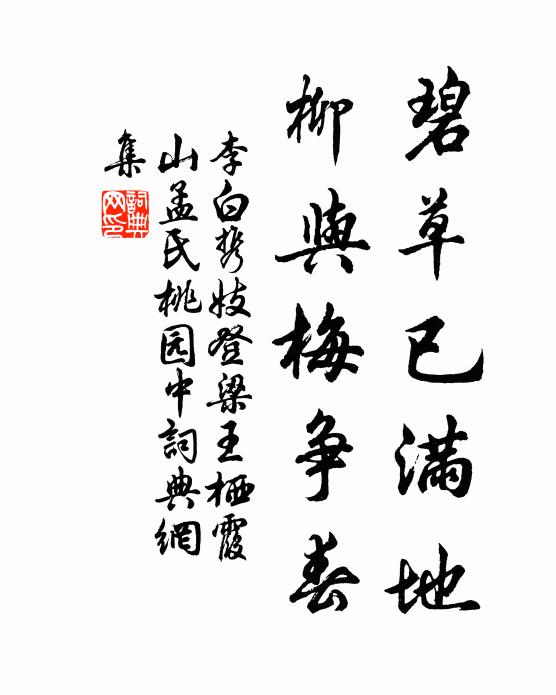 碧草已滿地
柳與梅争春
李白携妓登梁王栖霞
山孟氏桃园中詞典網
集
詞典網印